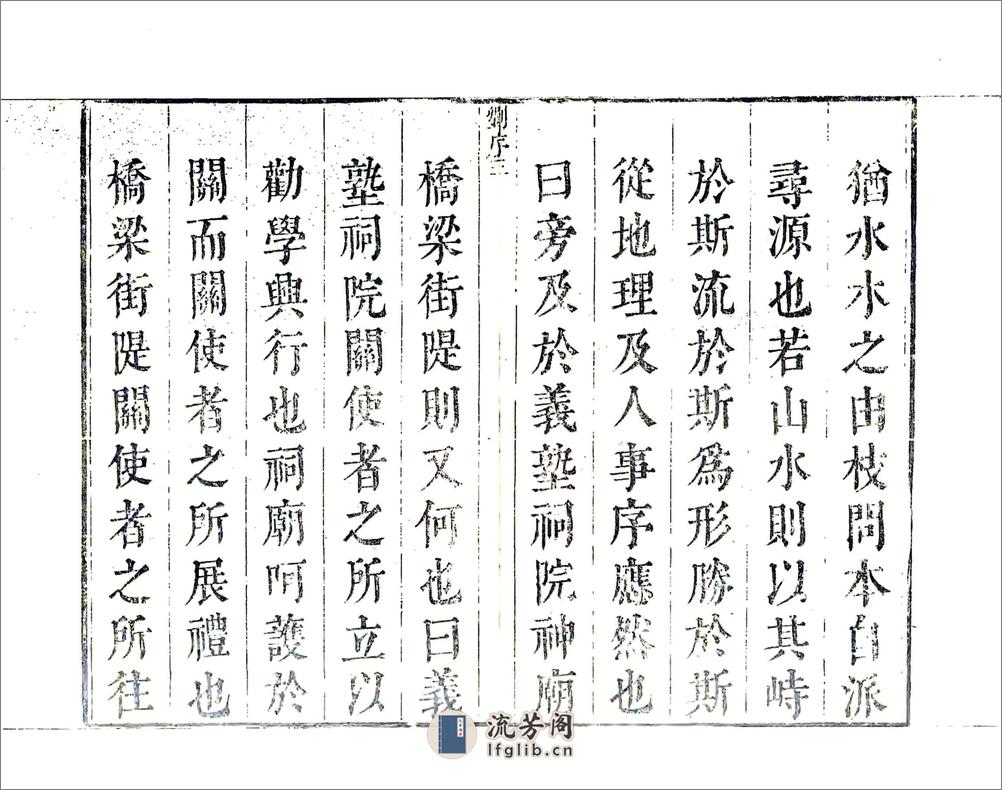 猶水水之由枝問本自派
尋源也若山水則以其峙
於斯流於斯爲形勝於斯
從地理及人事序應然也
曰旁及於義塾祠院神廟
卿序三
橋梁街隄則又何也曰義
塾祠院關使者之所立以
勸學興行也祠廟呵護於
關而關使者之所展禮也
橋梁街隄關使者之所往
流芳阁
lfglib.cn